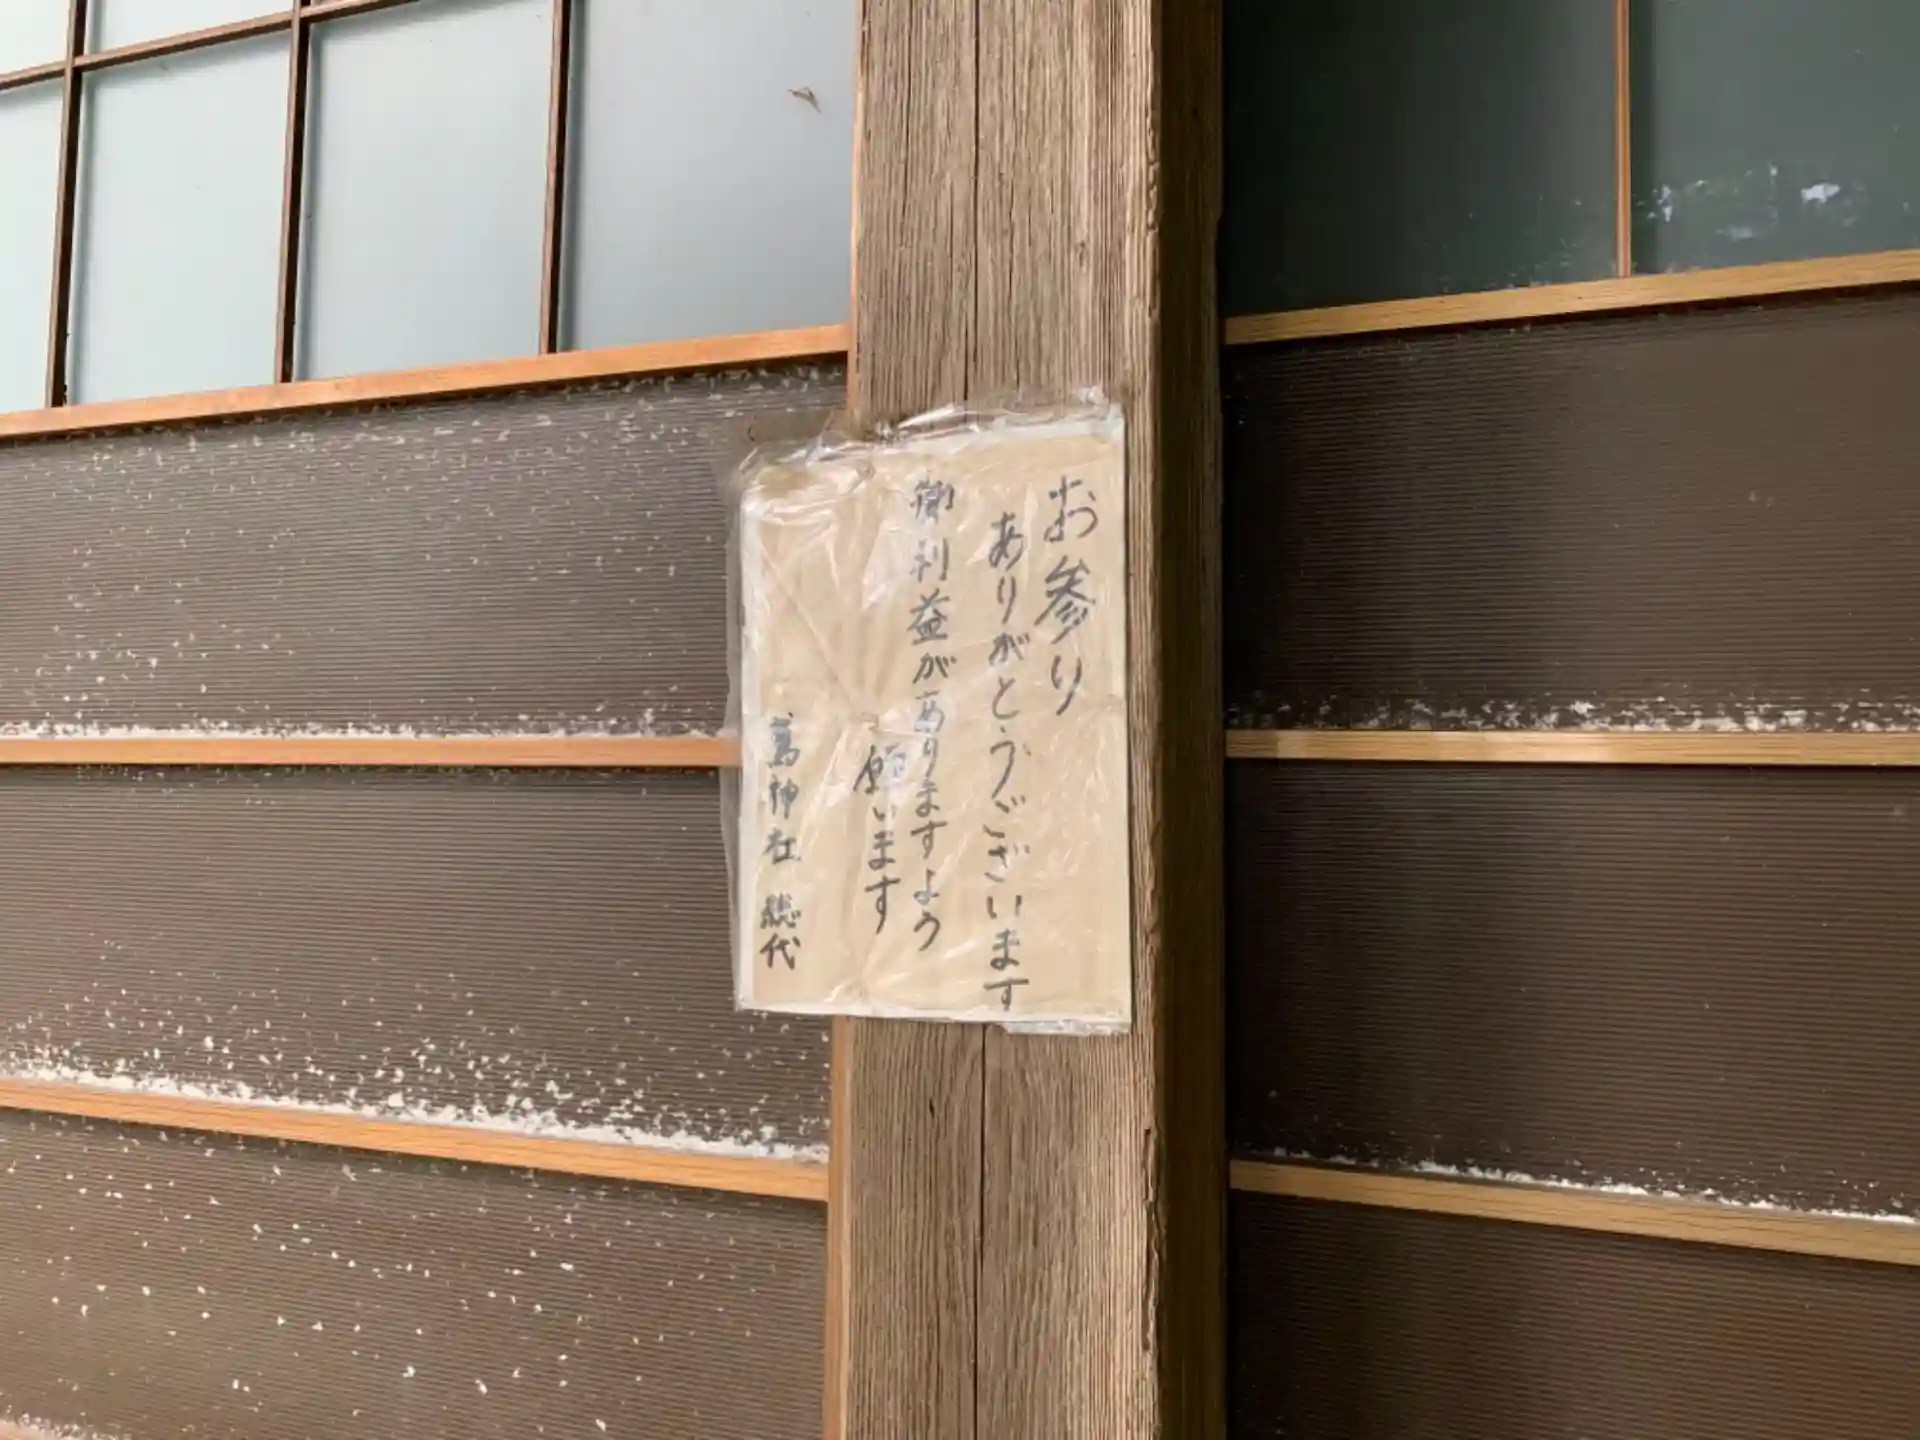 お参り
ありがとうございます
御利益がありますよう
願います
神社 総代